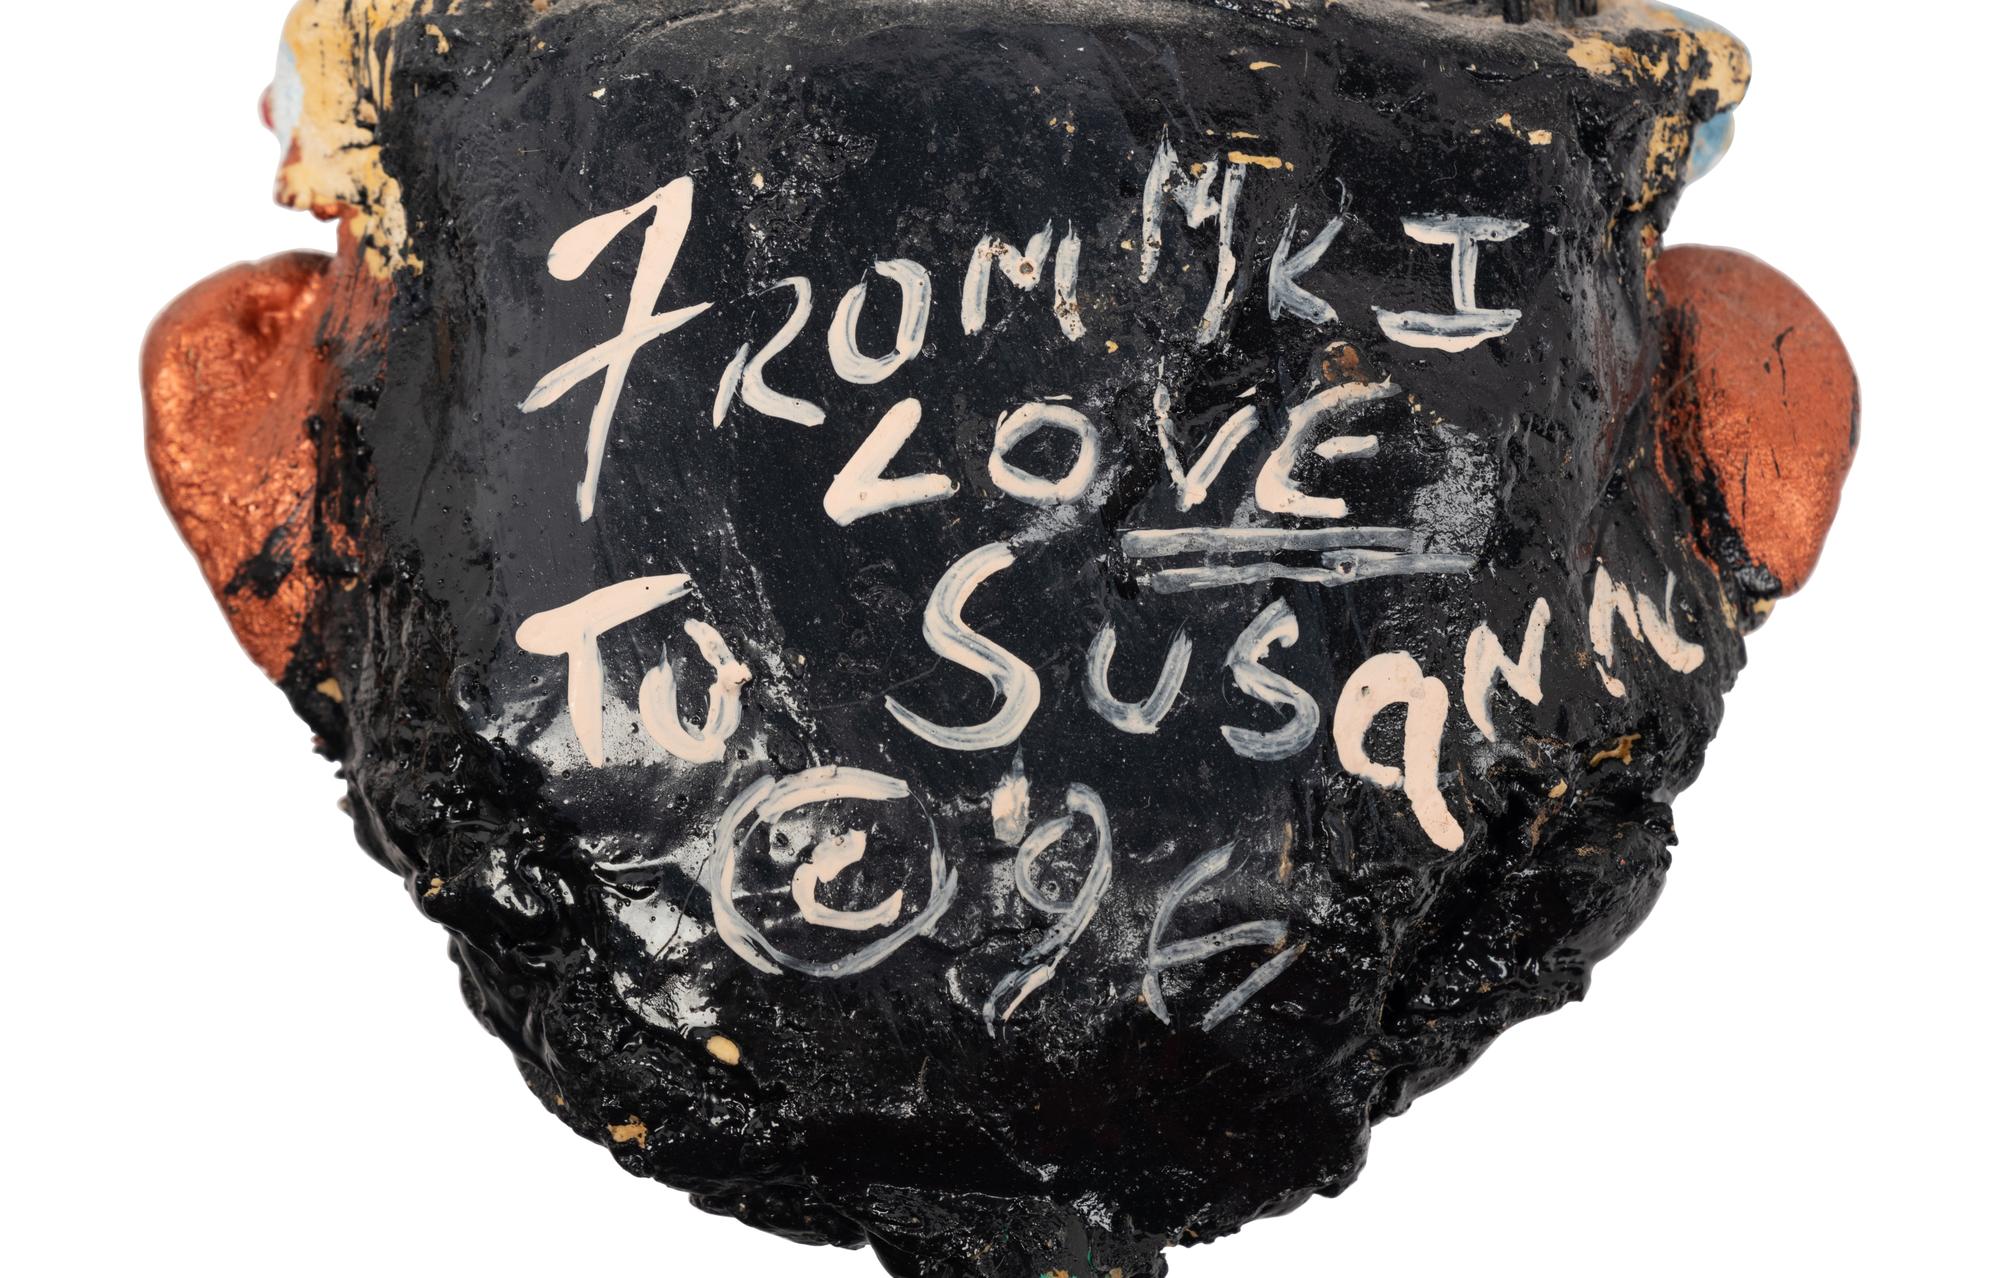 FROM MKI
LOVE
TO SUSANN
© '96